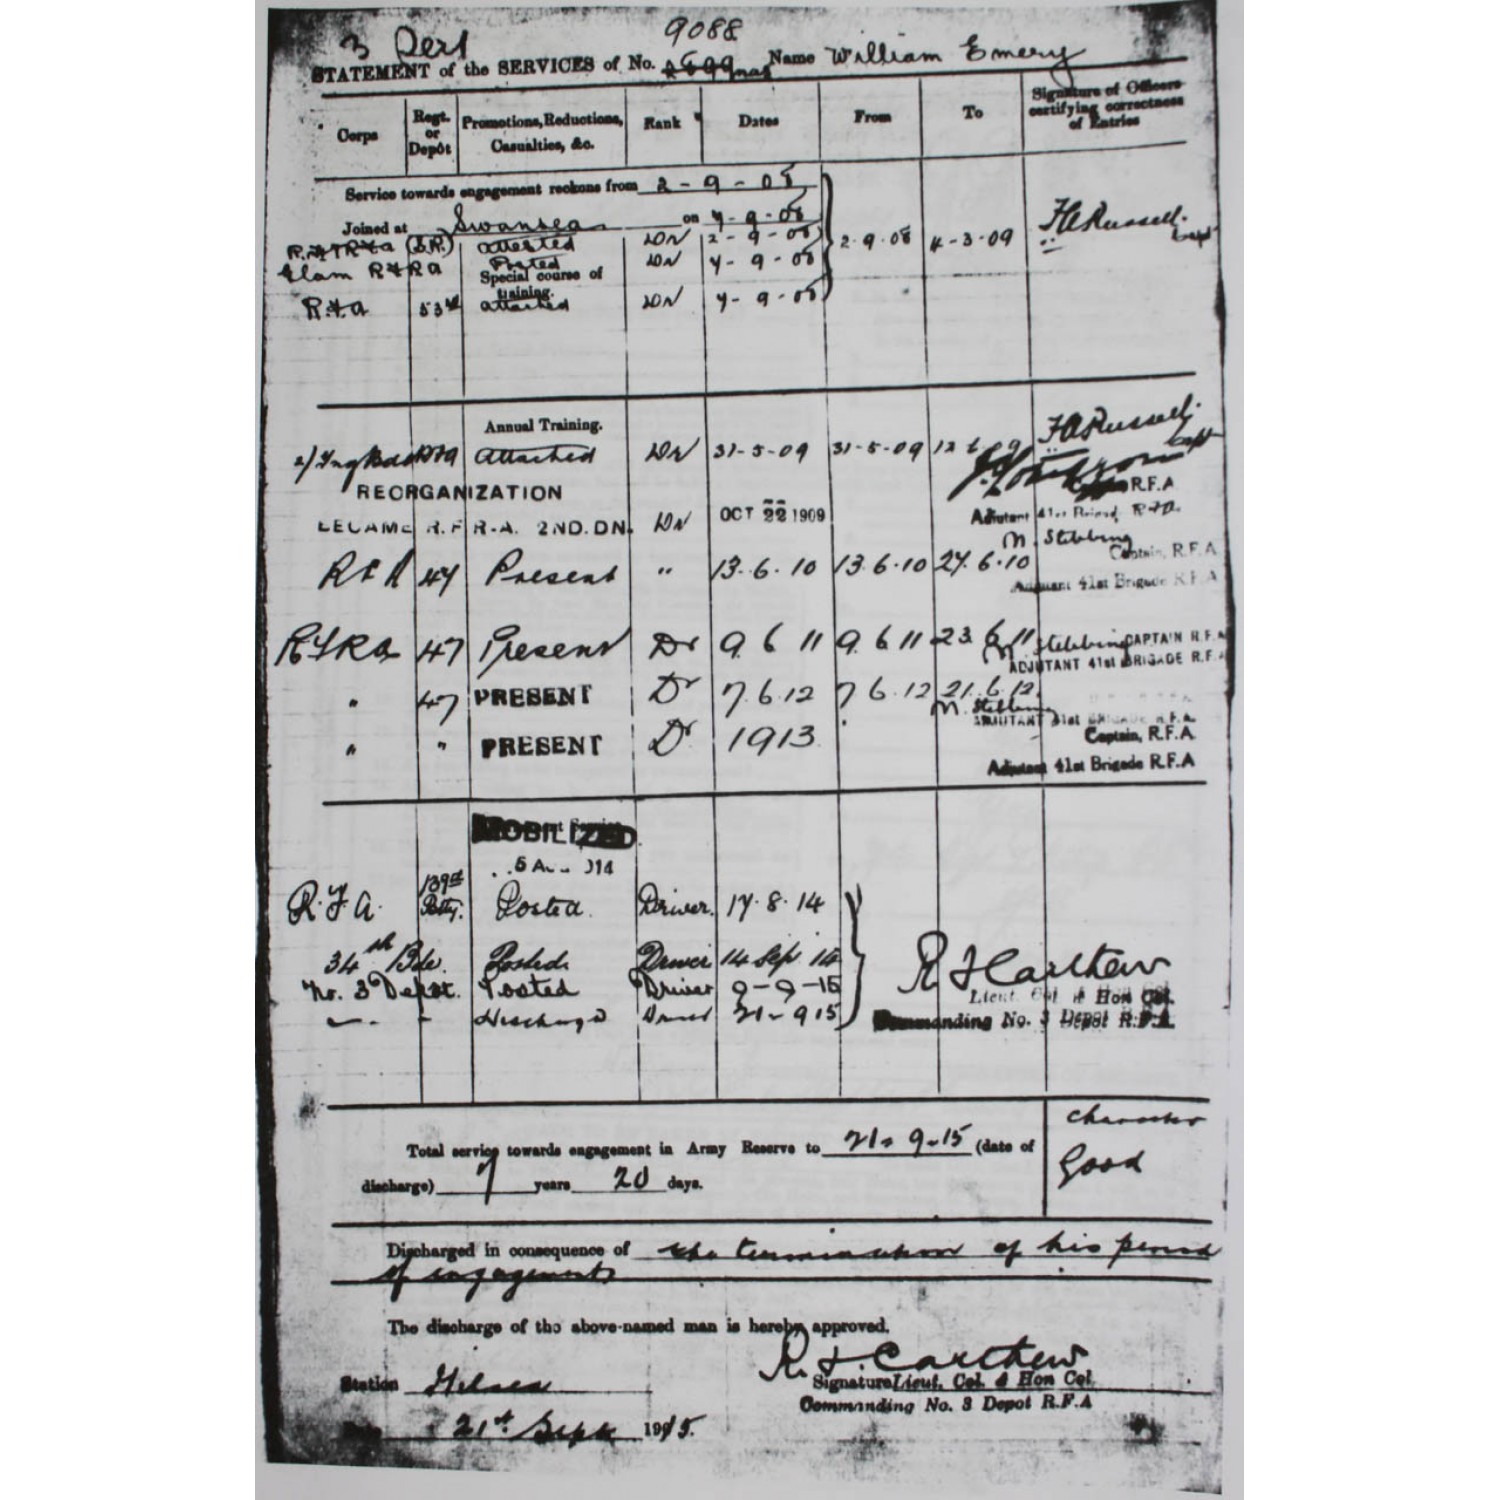 3 Dert 9088
STATEMENT of the SERVICES of No. Name William Emery
Corps
Regt. or Depôt
Promotions, Reductions, Casualties, &c.
Rank
Dates
From
To
Signature of Officers certifying correctness of Entries
Service towards engagement reckons from 2-9-08
Joined at Swansea on 7-9-08
(S.R.) attested Dr 2-9-08 2.9.08 4-3-09 Russell Capt
Glam R F R A Posted Dr 7-9-08
Special course of training.
R.F.A 53rd attached Dr 7-9-08
Annual Training.
attached Dr 31-5-09 31-5-09 Russell Capt
REORGANIZATION R.F.A
BECAME R.F.R.A. 2ND.DN. Dr OCT 22 1909 Adjutant 41st Brigd. R.F.A.
M. Stebbing
Captain, R.F.A
R F A 47 Present " 13.6.10 13.6.10 27.6.10
Adjutant 41st Brigade R.F.A
RFRA 47 Present Dr 9 6 11 9 6 11 23 6 11 M. Stebbing CAPTAIN R.F.A
ADJUTANT 41st BRIGADE R.F.A
" 47 PRESENT Dr 7.6.12 7 6.12 21.6.12.
M. Stebbing
ADJUTANT 41st BRIGADE R.F.A.
" " PRESENT Dr 1913 Captain, R.F.A.
Adjutant 41st Brigade R.F.A
MOBILIZED
5 AUG 1914
R.F.A. 139st Batty. Posted. Driver. 17.8.14
34th Bde. Posted Driver 14 Sep 14
No. 3 Depot. Posted Driver 9-9-15
" " Discharged Driver 21-9 15
R F Carthew
Lieut. Col & Hon Col.
Commanding No. 3 Depot R.F.A.
Total service towards engagement in Army Reserve to 21-9-15 (date of
discharge) 7 years 20 days.
Character
Good
Discharged in consequence of the termination of his period
of engagement
The discharge of the above-named man is hereby approved.
R. F. Carthew
Station Hilsea Signature Lieut. Col & Hon Col
Commanding No. 3 Depot R.F.A
21st Sept 1915.